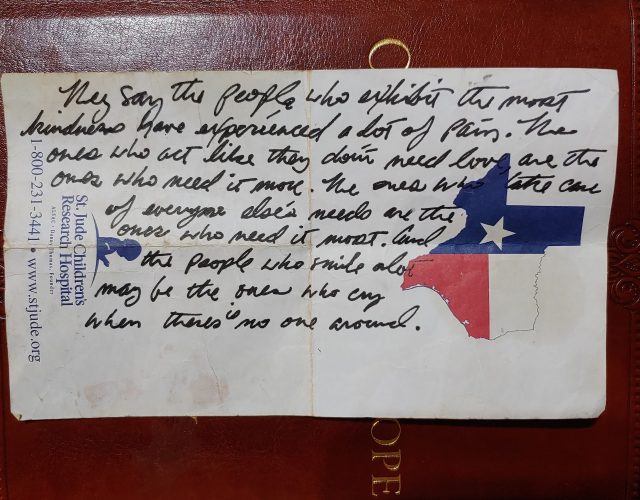 They say the people who exhibit the most
kindness have experienced a lot of pain. The
ones who act like they don't need love, are the
ones who need it more. The ones who take care
of everyone else's needs are the
ones who need it most. And
the people who smile alot
may be the ones who cry
when there's no one around.
St. Jude Children's
Research Hospital
ALSAC • Danny Thomas, Founder
1-800-231-3441 • www.stjude.org
OPE